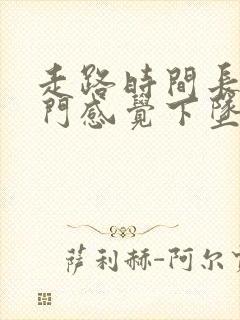 走路時間長
門感覺下墜
薩利赫-阿尔